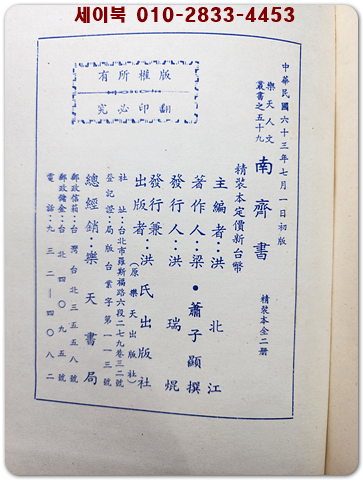 세이북 010-2833-4453
中華民國六十三年七月一日初版
樂天人文
叢書之五十九
南齊書
精裝本全二册
精裝本定價新台幣
主編者：洪北江
著作人：梁•蕭子顯撰
發行人：洪瑞焜
發行兼
出版者：洪氏出版社
（原樂天出版社）
社址：台北市羅斯福路六段二七九巷三二號
登記證：局版台業字第一一三號
總經銷：樂天書局
郵政信箱：台灣台北三五五八號
郵政儲金：台北四〇九五號
電話：九三二—四〇八二
版權所有
翻印必究